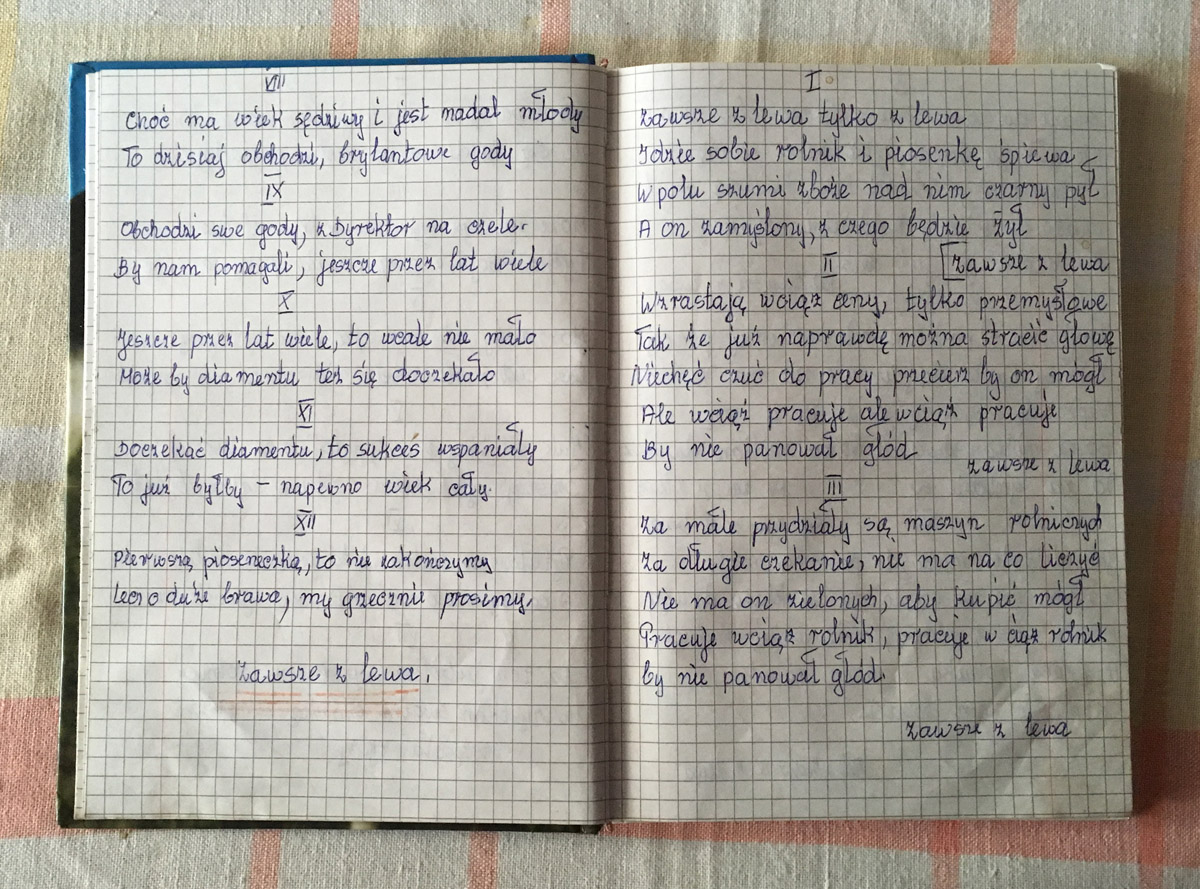 VIII
Choć ma wiek sędziwy i jest nadal młody
To dzisiaj obchodzi, brylantowe gody
IX
Obchodzi swe gody, z Dyrektor na czele.
By nam pomagali, jeszcze przez lat wiele
X
Jeszcze przez lat wiele, to wcale nie mało
Może by diamentu też się doczekało
XI
Doczekać diamentu, to sukces wspaniały
To już byłby - napewno wiek cały.
XII
Pierwszą pioseneczką, to nie zakończymy
Lecz o duże brawa, my grzecznie prosimy.
Zawsze z lewa.
I
Zawsze z lewa tylko z lewa
Idzie sobie rolnik i piosenkę śpiewa
W polu szumi zboże nad nim czarny pył
A on zamyślony, z czego będzie żył
II [Zawsze z lewa
Wzrastają wciąż ceny, tylko przemysłowe
Tak że już naprawdę można stracić głowę
Niechęć czuć do pracy przecierz by on mógł
Ale wciąż pracuje ale wciąż pracuje
By nie panował głód
Zawsze z lewa
III
Za małe przydziały są maszyn rolniczych
Za długie czekanie, nie ma na co liczyć
Nie ma on zielonych, aby kupić mógł
Pracuje wciąż rolnik, pracuje w ciąż rolnik
by nie panował głód.
Zawsze z lewa